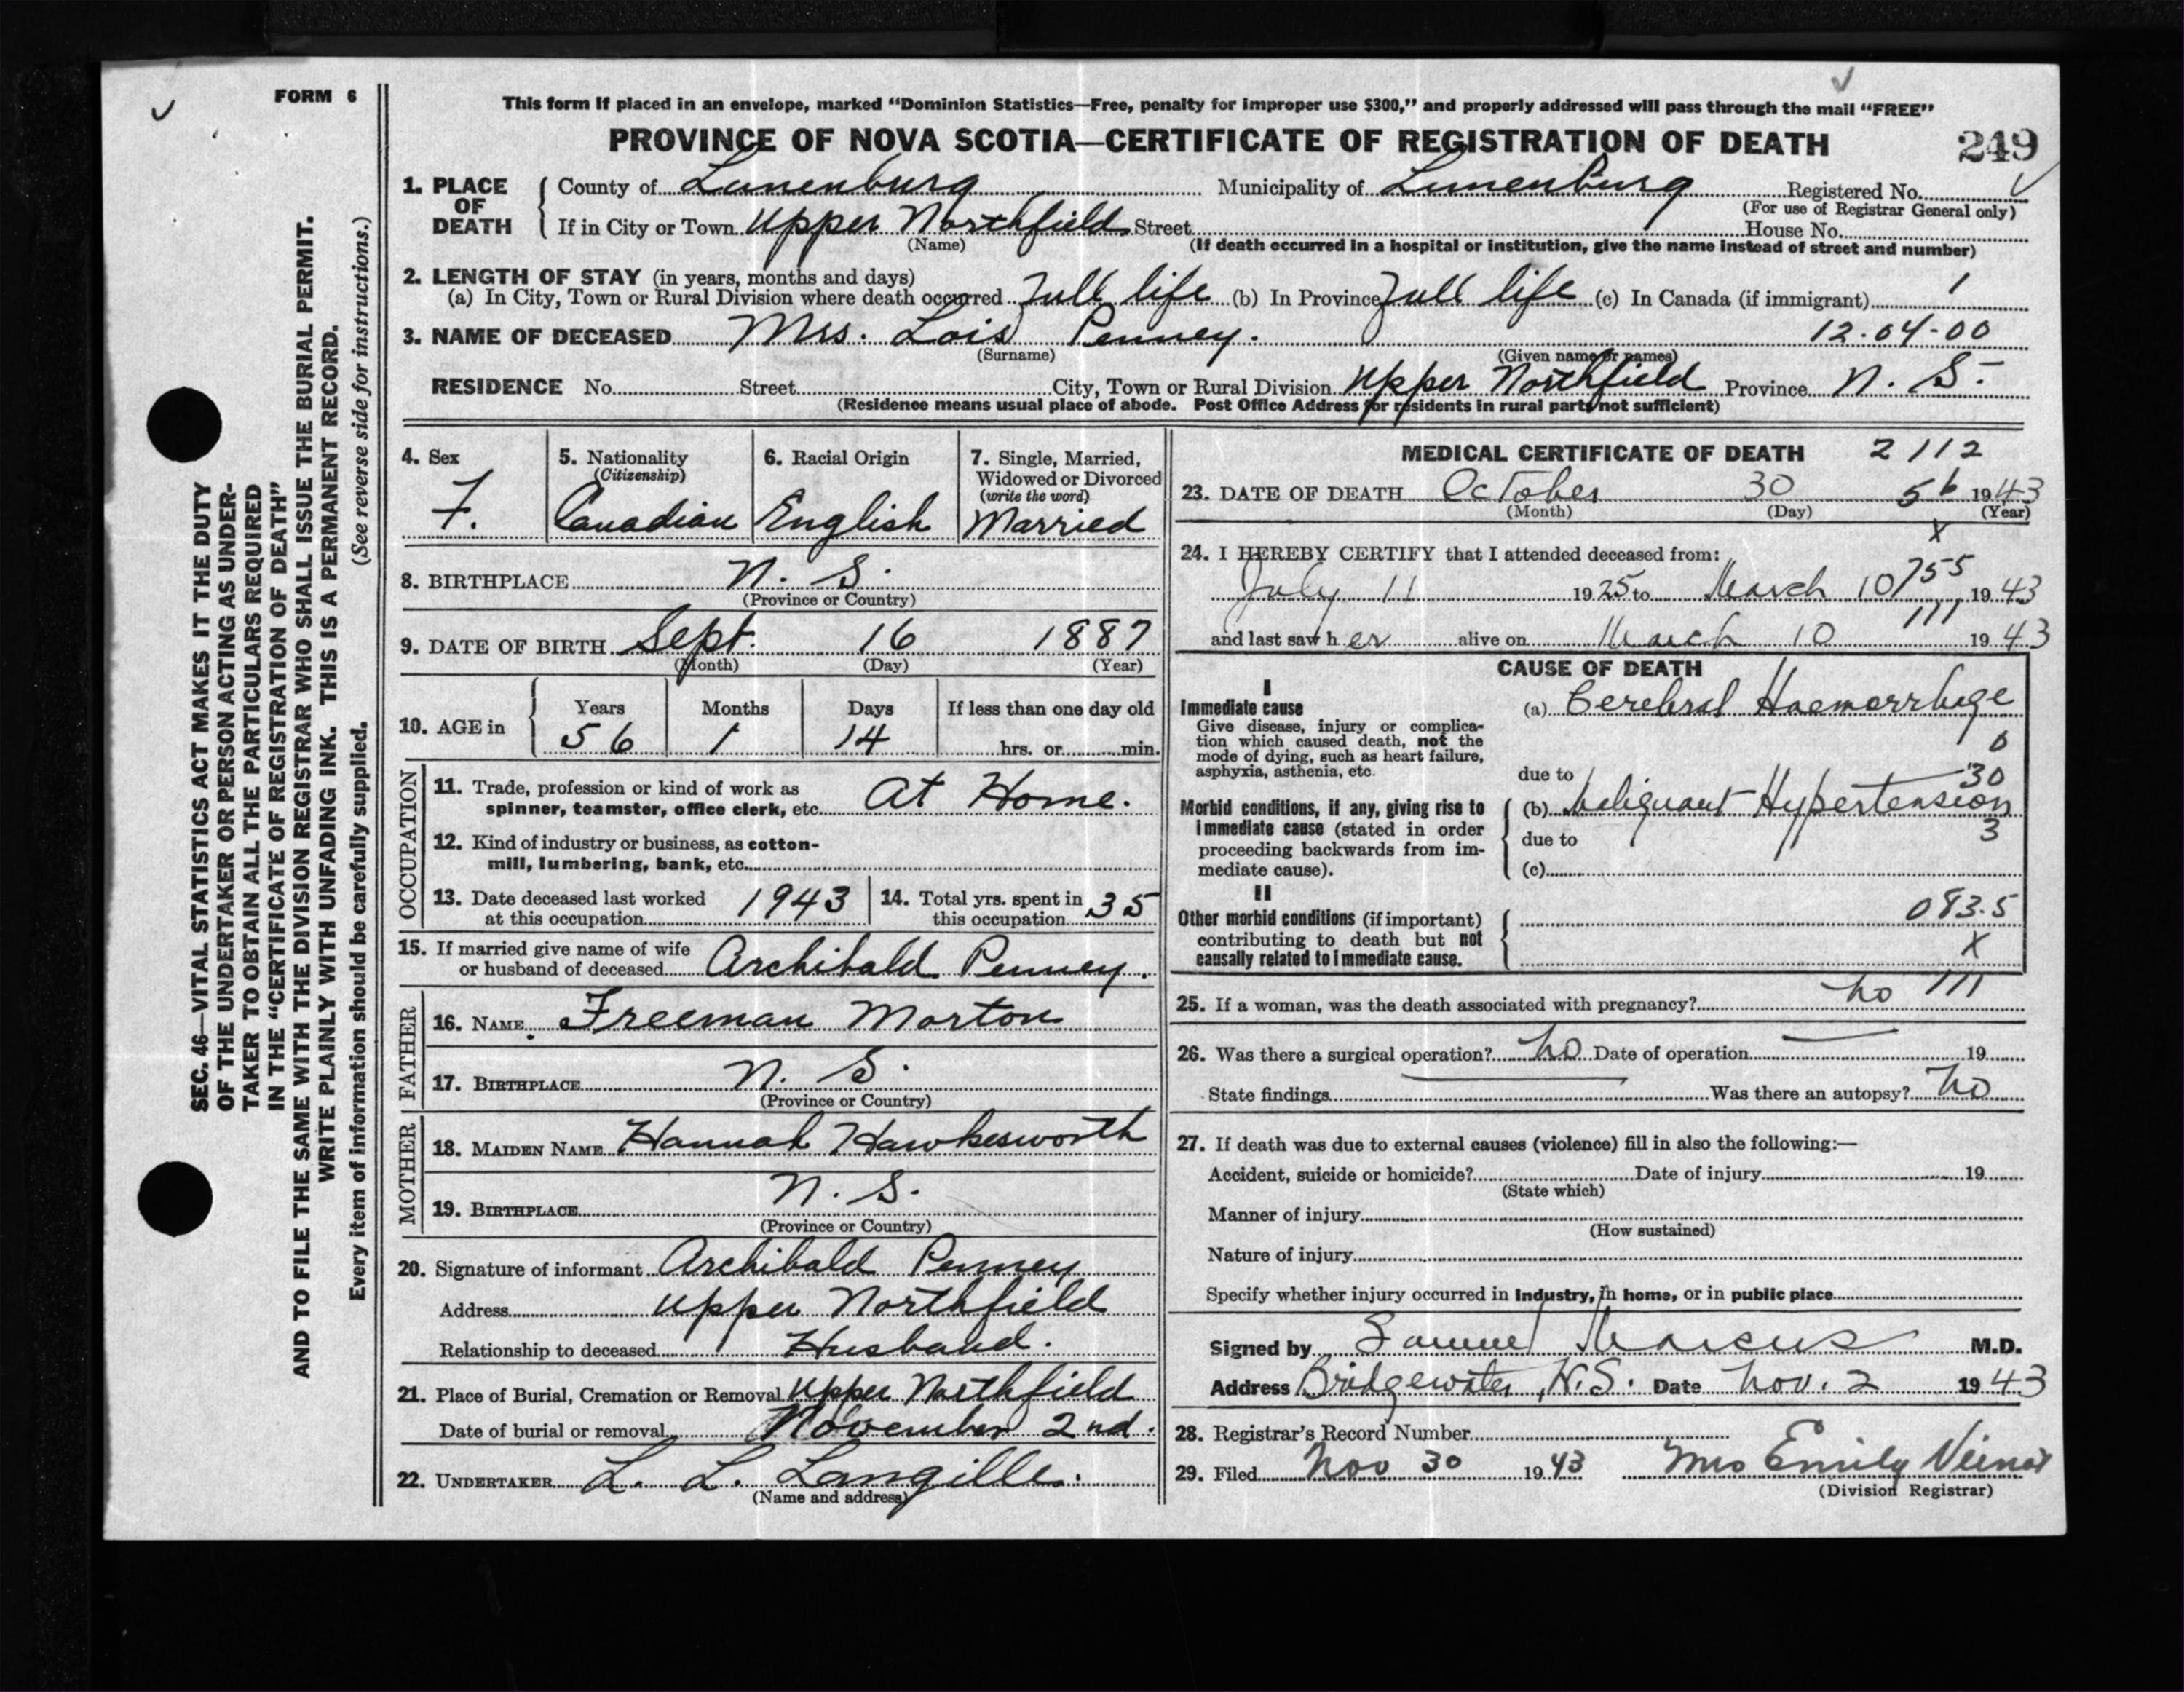 FORM 6
This form if placed in an envelope, marked "Dominion Statistics—Free, penalty for improper use $300," and properly addressed will pass through the mail "FREE"
PROVINCE OF NOVA SCOTIA—CERTIFICATE OF REGISTRATION OF DEATH
249
SEC. 46—VITAL STATISTICS ACT MAKES IT THE DUTY
OF THE UNDERTAKER OR PERSON ACTING AS UNDER-
TAKER TO OBTAIN ALL THE PARTICULARS REQUIRED
IN THE "CERTIFICATE OF REGISTRATION OF DEATH"
AND TO FILE THE SAME WITH THE DIVISION REGISTRAR WHO SHALL ISSUE THE BURIAL PERMIT.
WRITE PLAINLY WITH UNFADING INK. THIS IS A PERMANENT RECORD.
Every item of information should be carefully supplied. (See reverse side for instructions.)
1. PLACE OF DEATH
County of Lunenburg Municipality of Lunenburg Registered No.
(For use of Registrar General only)
If in City or Town Upper Northfield Street House No.
(Name) (If death occurred in a hospital or institution, give the name instead of street and number)
2. LENGTH OF STAY (in years, months and days)
(a) In City, Town or Rural Division where death occurred Full life (b) In Province Full life (c) In Canada (if immigrant) 1
3. NAME OF DECEASED Mrs. Lois Penney. 12.04-00
(Surname) (Given name or names)
RESIDENCE No. Street City, Town or Rural Division Upper Northfield Province N. S.
(Residence means usual place of abode. Post Office Address for residents in rural parts not sufficient)
4. Sex
F.
5. Nationality
(Citizenship)
Canadian
6. Racial Origin
English
7. Single, Married,
Widowed or Divorced
(write the word)
Married
8. BIRTHPLACE N. S.
(Province or Country)
9. DATE OF BIRTH Sept. 16 1887
(Month) (Day) (Year)
10. AGE in
Years Months Days If less than one day old
56 1 14 hrs. or min.
OCCUPATION
11. Trade, profession or kind of work as
spinner, teamster, office clerk, etc. At Home.
12. Kind of industry or business, as cotton-
mill, lumbering, bank, etc.
13. Date deceased last worked
at this occupation 1943
14. Total yrs. spent in
this occupation 35
15. If married give name of wife
or husband of deceased Archibald Penney.
FATHER
16. NAME Freeman Morton
17. BIRTHPLACE N. S.
(Province or Country)
MOTHER
18. MAIDEN NAME Hannah Hawkesworth
19. BIRTHPLACE N. S.
(Province or Country)
20. Signature of informant Archibald Penney
Address Upper Northfield
Relationship to deceased Husband.
21. Place of Burial, Cremation or Removal Upper Northfield
Date of burial or removal November 2nd.
22. UNDERTAKER L. L. Langille.
(Name and address)
MEDICAL CERTIFICATE OF DEATH 2112
23. DATE OF DEATH October 30 56 1943
(Month) (Day) (Year)
X
24. I HEREBY CERTIFY that I attended deceased from:
July 11 1925 to March 10 755 1943
111
and last saw her alive on March 10 1943
CAUSE OF DEATH
I
Immediate cause
Give disease, injury or complica-
tion which caused death, not the
mode of dying, such as heart failure,
asphyxia, asthenia, etc.
(a) Cerebral Haemorrhage
0
due to 30
Morbid conditions, if any, giving rise to
immediate cause (stated in order
proceeding backwards from im-
mediate cause).
(b) Malignant Hypertension
due to 3
(c)
II
Other morbid conditions (if important)
contributing to death but not
causally related to immediate cause.
083.5
X
25. If a woman, was the death associated with pregnancy? no 111
26. Was there a surgical operation? no Date of operation 19
State findings Was there an autopsy? no
27. If death was due to external causes (violence) fill in also the following:—
Accident, suicide or homicide? Date of injury 19
(State which)
Manner of injury
(How sustained)
Nature of injury
Specify whether injury occurred in industry, in home, or in public place
Signed by Samuel Marcus M.D.
Address Bridgewater, N.S. Date Nov. 2 1943
28. Registrar's Record Number
29. Filed Nov 30 1943 Mrs Emily
(Division Registrar)